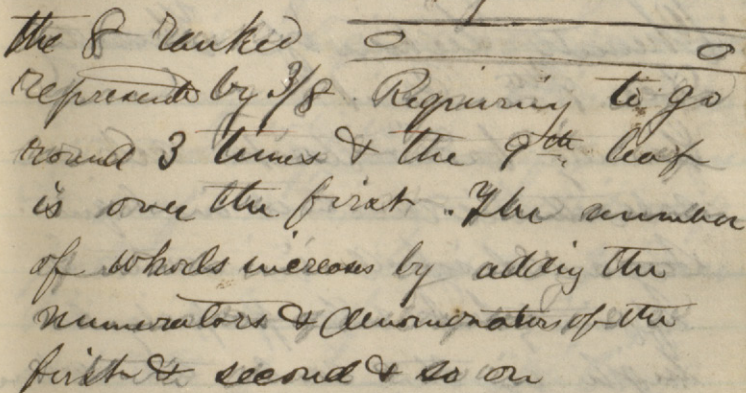 the 8 ranked
represents by 3/8. Requiring to go
round 3 times & the 9th leaf
is over the first. The number
of whorls increases by adding the
numerators & denominators of the
first & second & so on